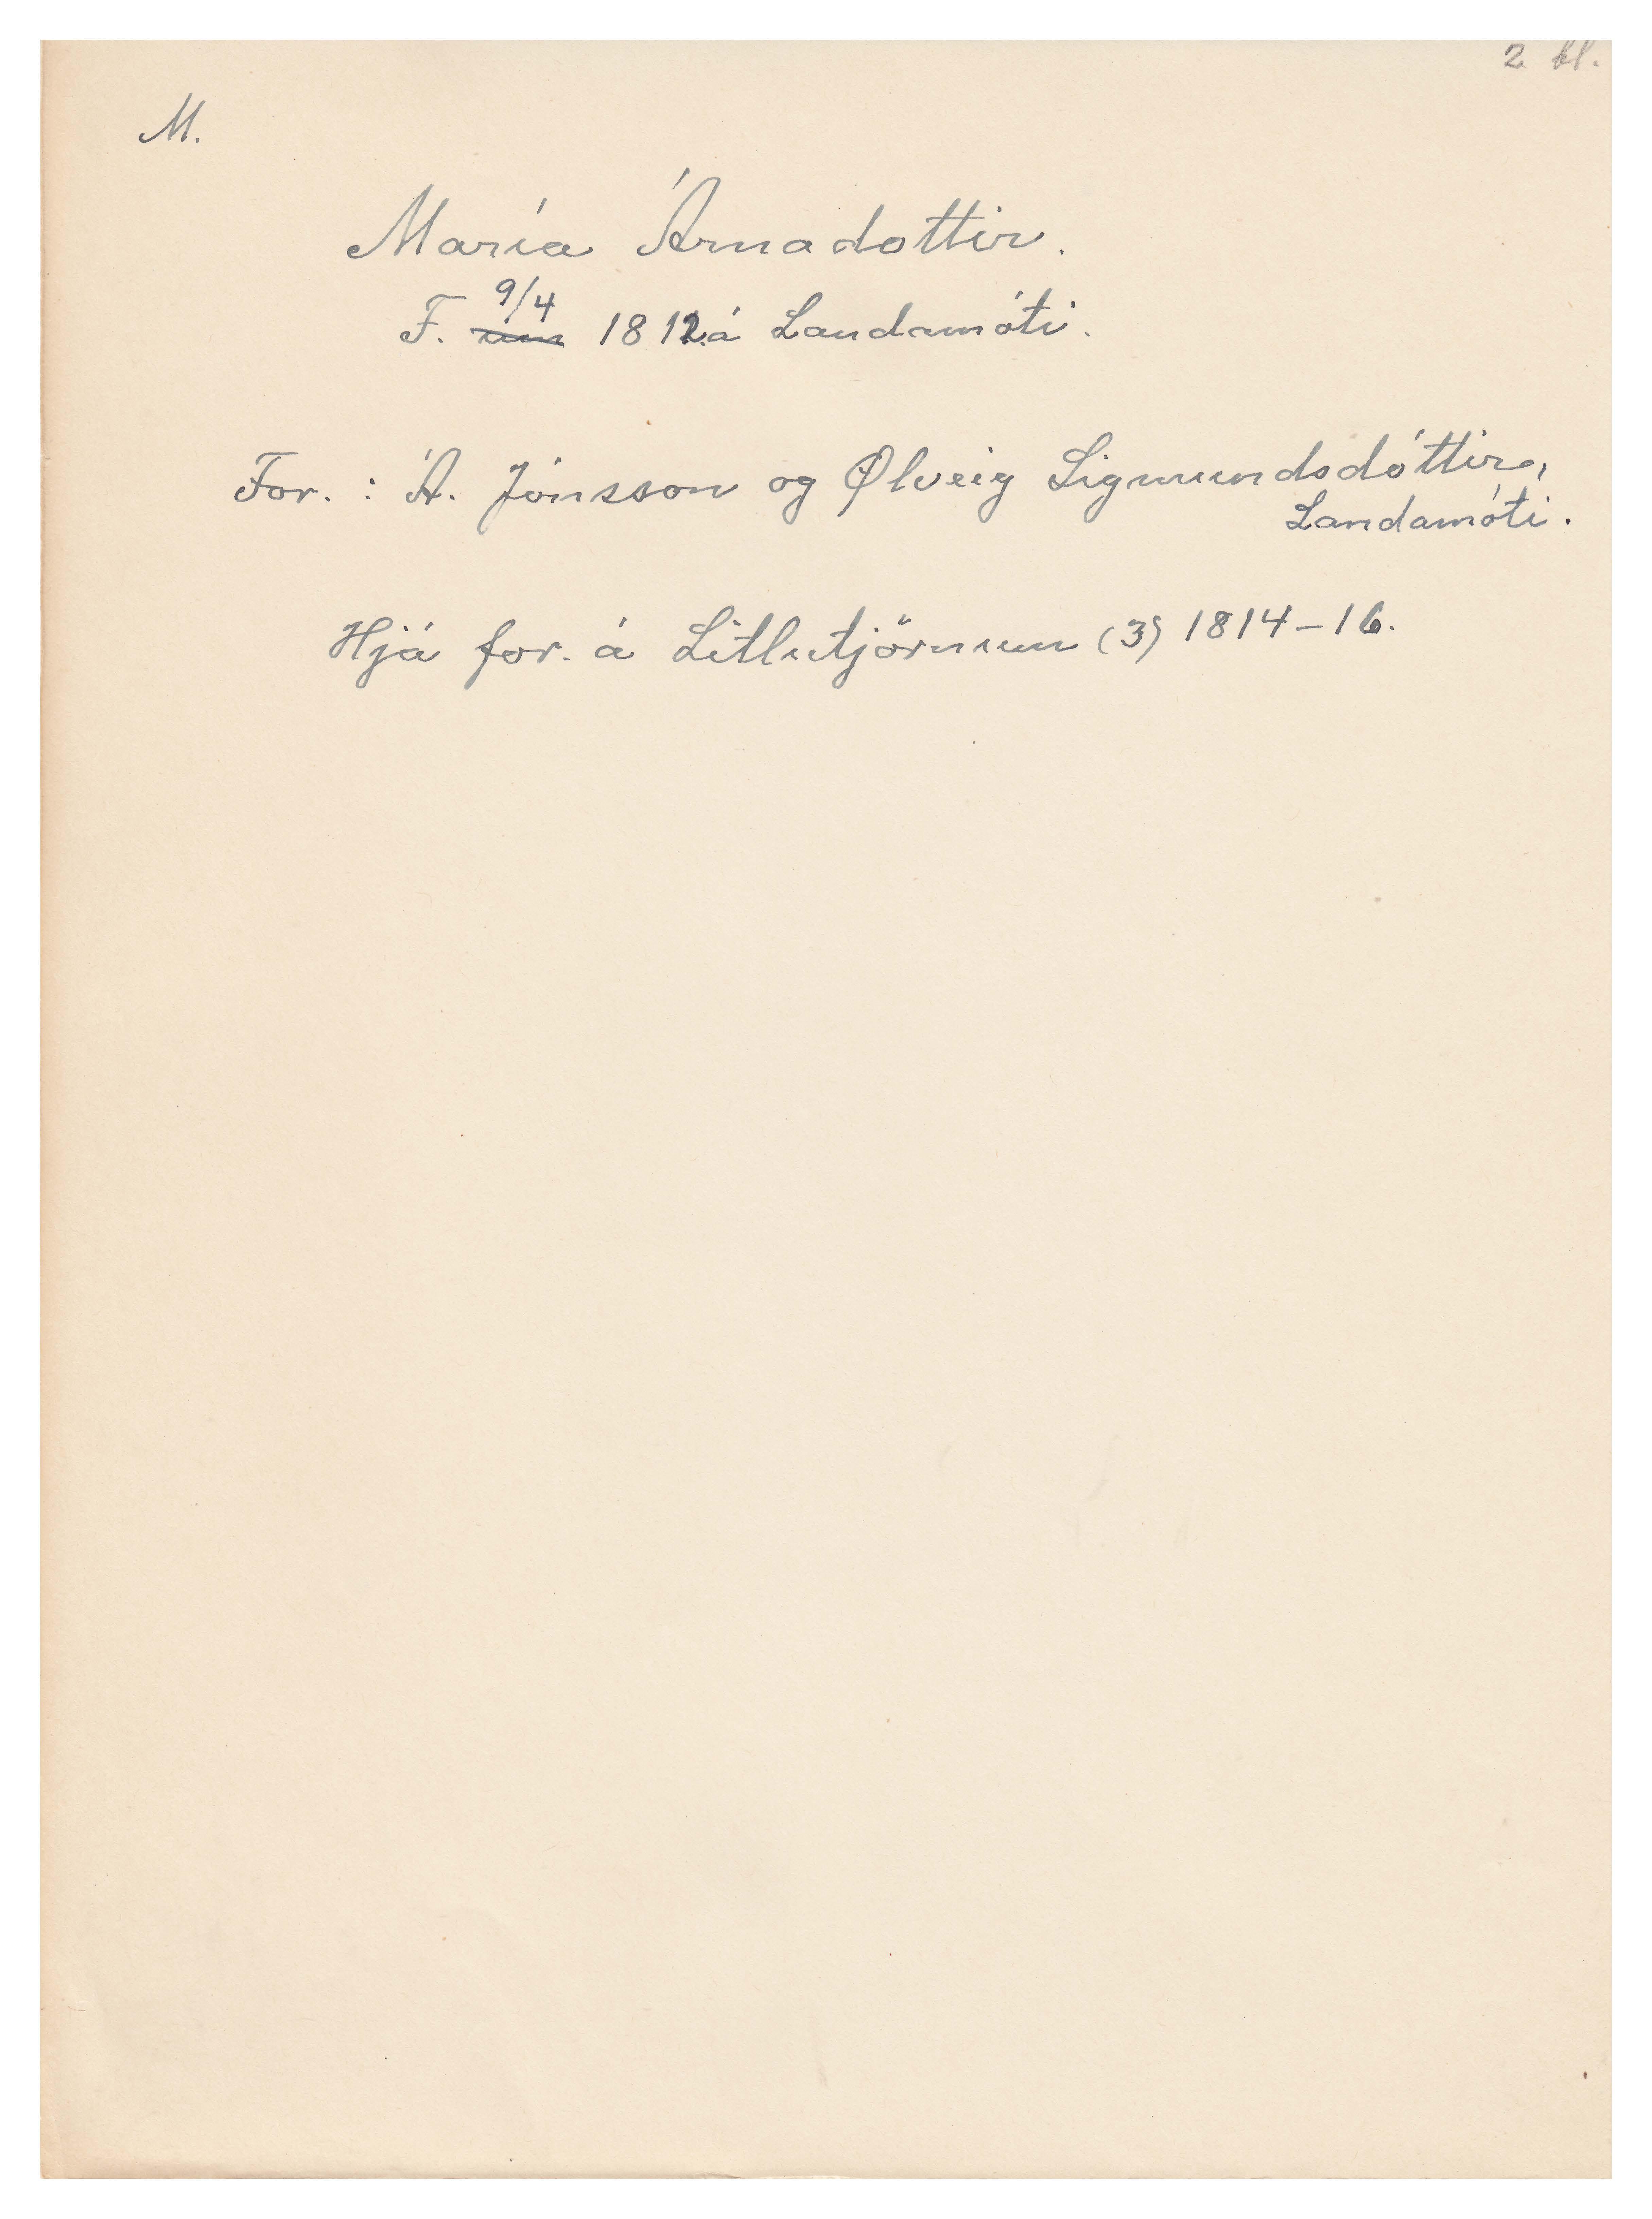 2 bl.
M.
María Árnadottir.
9/4
F. um 1812 á Landamóti.
For. : Á. Jónsson og Ølveig Sigmundsdóttir,
Landamóti.
Hjá for. á Litlutjörnum (3) 1814-16.